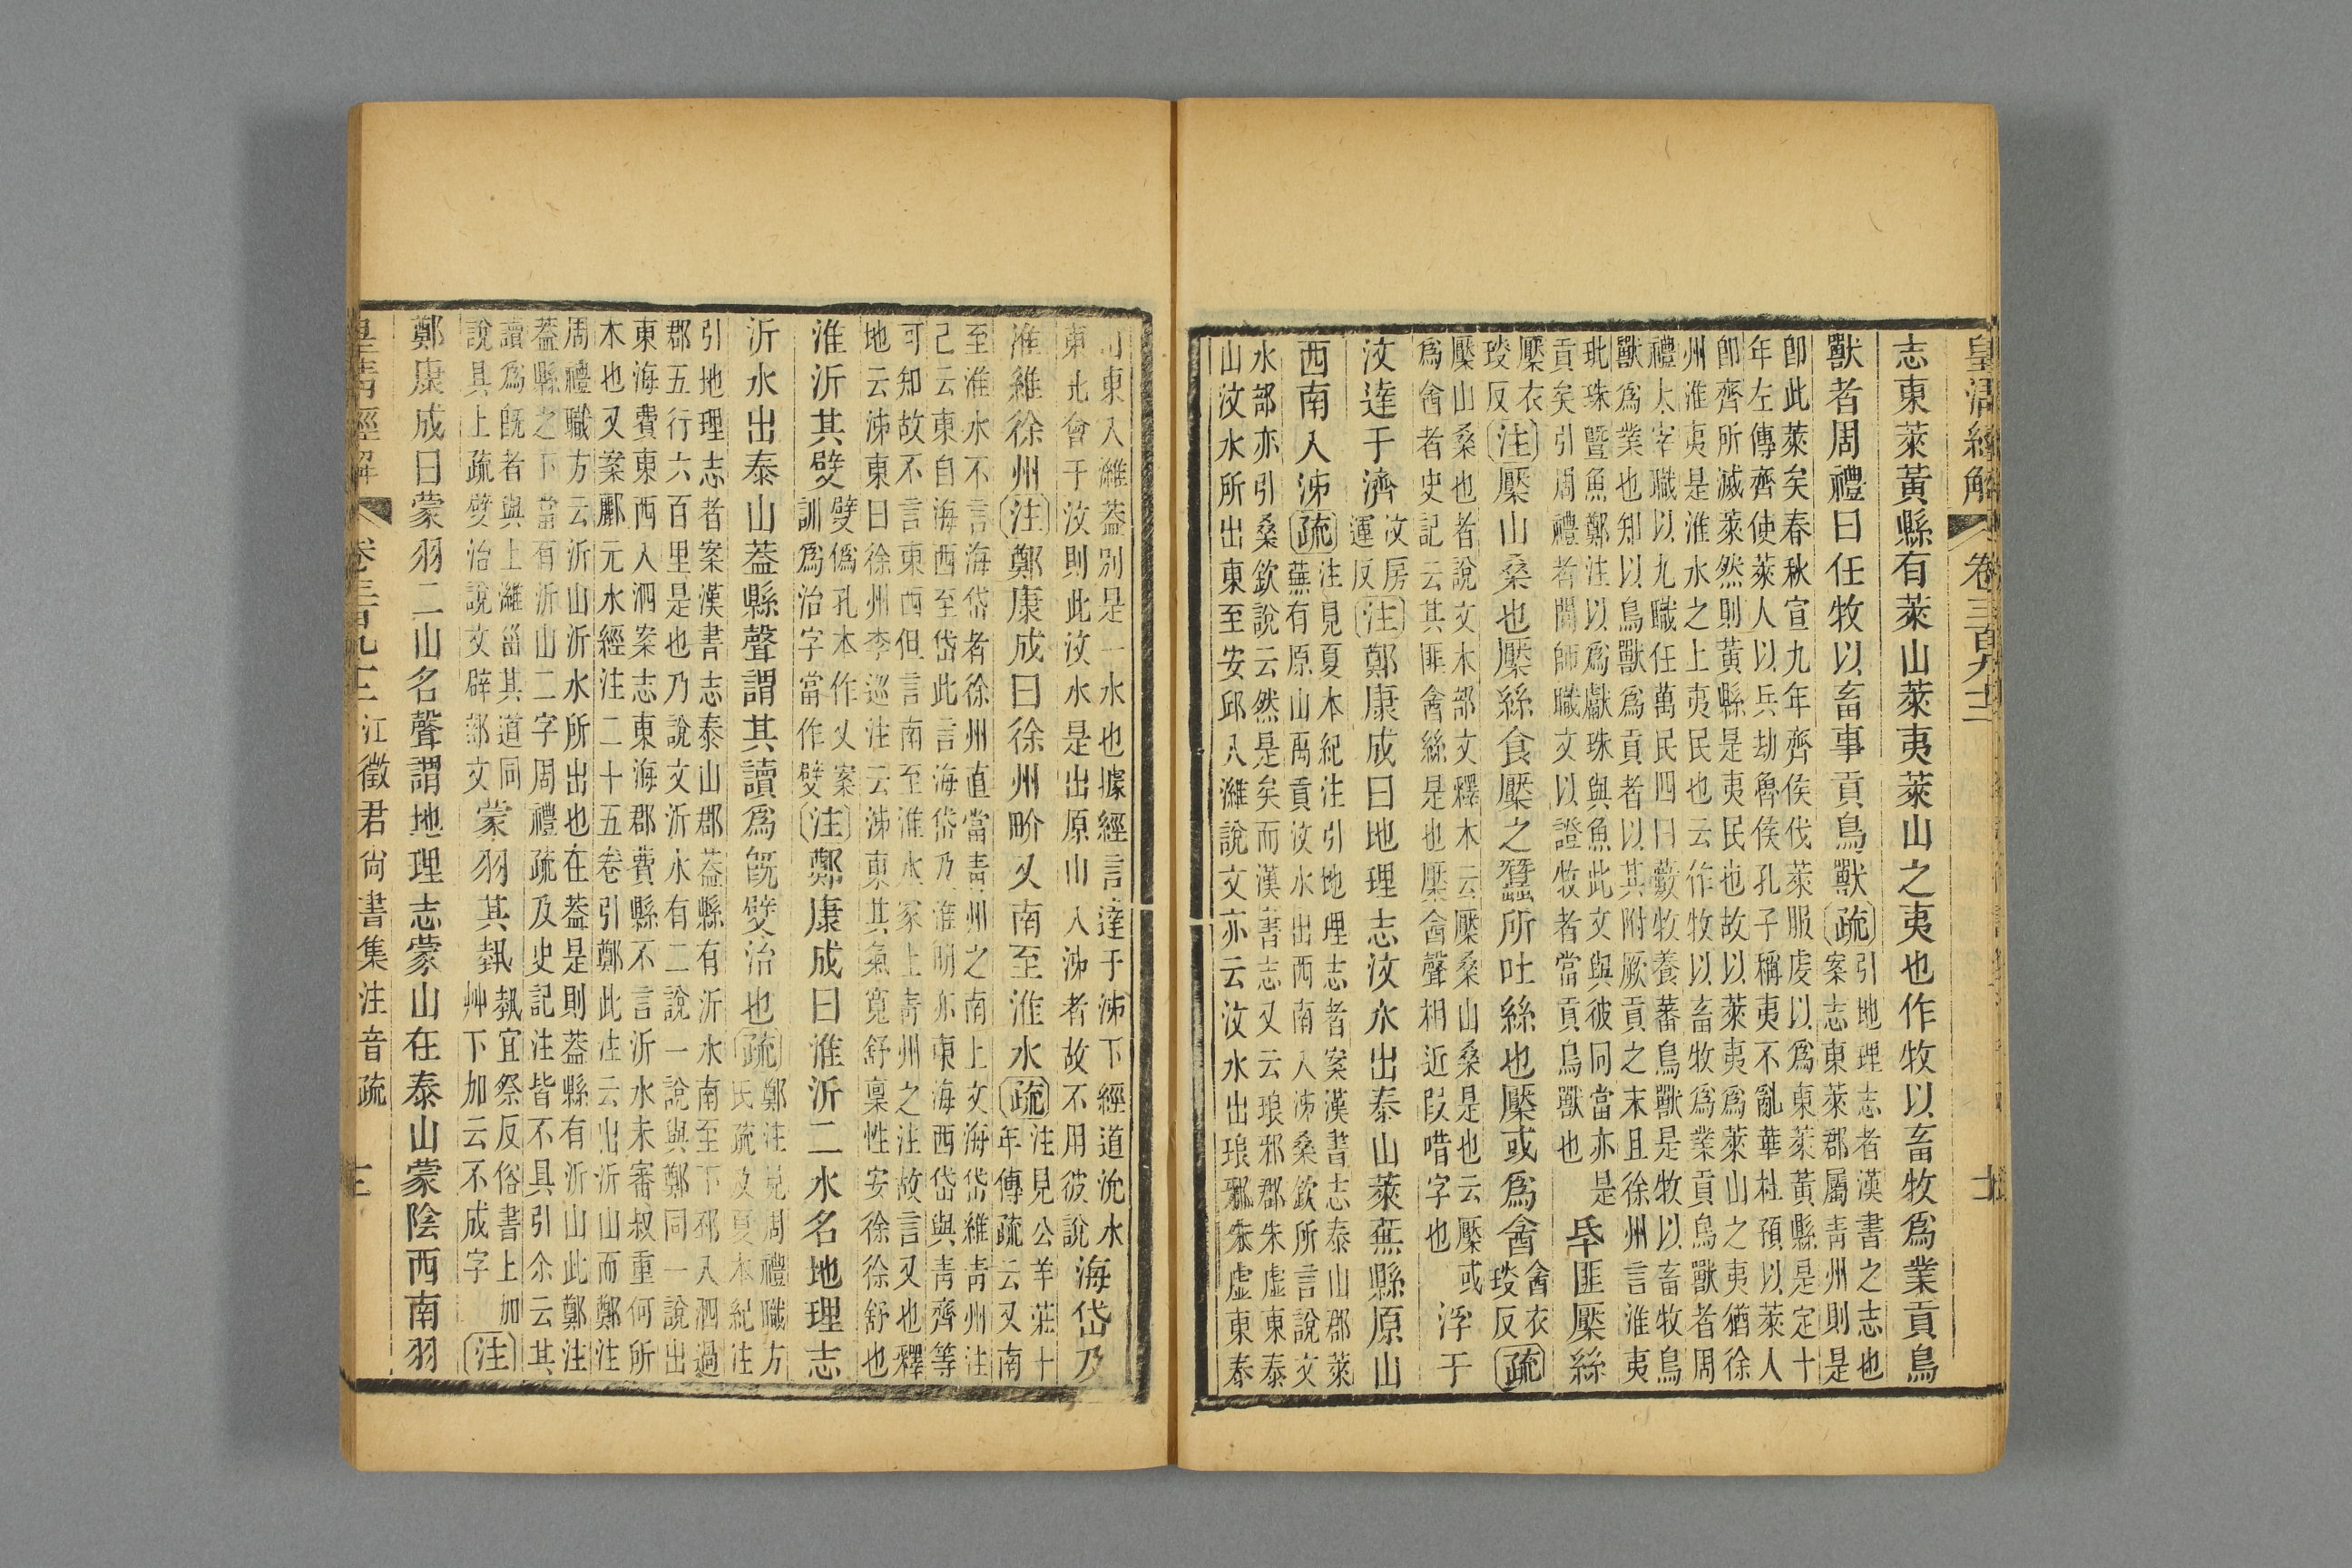 皇清經解 卷三百九十三
志東萊黃縣有萊山萊夷萊山之夷也作牧以畜牧爲業貢鳥
獸者周禮曰任牧以畜事貢鳥獸疏引地理志者漢書之志也
案志東萊郡屬青州則是
卽此萊矣春秋宣九年齊侯伐萊服虔以爲東萊黃縣是定十
年左傳齊使萊人以兵劫魯侯孔子稱夷不亂華杜預以萊人
卽齊所滅萊然則黃縣是夷民也故以萊夷爲萊山之夷猶徐
州淮夷是淮水之上夷民也云作牧以畜牧爲業貢鳥獸者周
禮太宰職以九職任萬民四曰藪牧養蕃鳥獸是牧以畜牧鳥
獸爲業也知以鳥獸爲貢者以其附厥貢之末且徐州言淮夷
玭珠曁魚鄭注以爲獻珠與魚此文與彼同當亦是
貢矣引周禮者閭師職文以證牧者當貢鳥獸也
厥匪檿絲
檿衣
琰反
注檿山桑也檿絲食檿之蠶所吐絲也檿或爲酓酓衣
琰反
疏
檿山桑也者說文木部文釋木云檿桑山桑是也云檿或
爲酓者史記云其匪酓絲是也檿酓聲相近叚唶字也
浮于
汶達于濟汶房
運反
注鄭康成曰地理志汶水出泰山萊蕪縣原山
西南入泲疏注見夏本紀注引地理志者案漢書志泰山郡萊
蕪有原山禹貢汶水出西南入泲桑欽所言說文
水部亦引桑欽說云然是矣而漢書志又云琅邪郡朱虛東泰
山汶水所出東至安邱入濰說文亦云汶水出琅邪朱虛東泰
東入濰葢別是一水也據經言達于泲下經道沇水
東北會于汶則此汶水是出原山入泲者故不用彼說
海岱乃
淮維徐州注鄭康成曰徐州畍又南至淮水疏注見公羊莊十
年傳疏云又南
至淮水不言海岱者徐州直當青州之南上文海岱維青州注
己云東自海西至岱此言海岱乃淮明亦東海西岱與青齊等
可知故不言東西但言南至淮水冢上青州之注故言又也釋
地云泲東曰徐州李巡注云泲東其氣寬舒稟性安徐徐舒也
淮沂其嬖嬖僞孔本作乂案
訓爲治字當作嬖
注鄭康成曰淮沂二水名地理志
沂水出泰山葢縣聲謂其讀爲旣嬖治也疏鄭注見周禮職方
氏疏及夏本紀注
引地理志者案漢書志泰山郡葢縣有沂水南至下邳入泗過
郡五行六百里是也乃說文沂水有二說一說與鄭同一說出
東海費東西入泗案志東海郡費縣不言沂水未審叔重何所
本也又案酈元水經注二十五卷引鄭此注云出沂山而鄭注
周禮職方云沂山沂水所出也在葢是則葢縣有沂山此鄭注
葢縣之下當有沂山二字周禮疏及史記注皆不具引尒云其
讀爲旣者與上濰甾其道同
說具上疏嬖治說文辟部文
蒙羽其埶埶宜祭反俗書上加
艸下加云不成字
注
鄭康成曰蒙羽二山名聲謂地理志蒙山在泰山蒙陰西南羽
皇清經解 卷三百九十三 江徵君尙書集注音疏